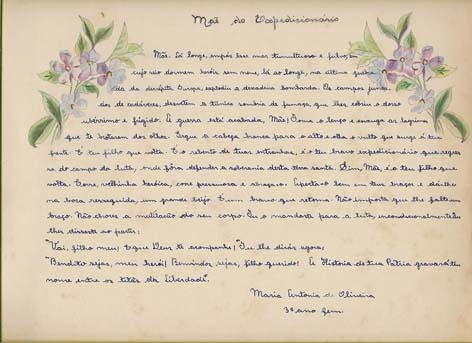 Mãe do Expedicionário
Mãe. Lá longe, empós esse mar tumultuoso e fulvo, em
cujo não dormem heróis sem nome, lá ao longe, na última quebra-
da da decrépita Europa, explodiu a derradeira bombarda. Os campos junca-
dos de cadáveres, despem a túnica sombria de fumaça, que lhes cobriu o dorso
e frígido. A guerra está acabada, Mãe! Tome o lenço e enxuga as lágrimas
que te brotaram dos olhos. Ergue a cabeça branca para o alto e olha o vulto que surge à tua
frente. É teu filho que volta. É o rebento de tuas entranhas, é o teu bravo expedicionário que regres-
sa do campo da luta, onde fôra defender a soberania desta terra santa. Sim, Mãe, é o teu filho que
volta. Corre, velhinha heróica, corre pressurosa e abraça-o. Aperta-o bem em teus braços e dá-lhe
na boca ressequida, um grande beijo. É um bravo que retorna. Não importa que lhe falte um
braço. Não chores a mutilação do seu corpo. Tu o mandaste para a luta, incondicionalmente. Tu
lhes disseste ao partir:
"Vai, filho meu! E que Deus te acompanhe!" Tu lhe dirás agora:
"Bendito sejas, meu herói! Benvindo sejas, filho querido! A História de tua Pátria gravará teu
nome entre os titãs da Liberdade".
Maria Antonia de Oliveira
3º ano Gem.